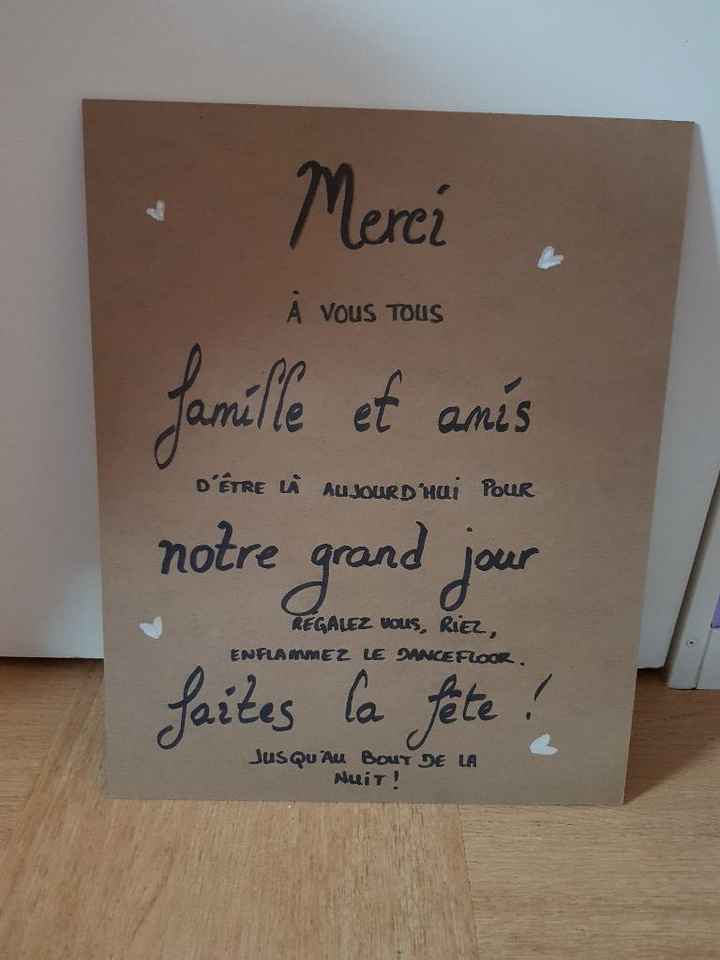 Merci
À VOUS TOUS
famille et amis
D'ÊTRE LÀ AUJOURD'HUI POUR
notre grand jour
RÉGALEZ VOUS, RIEZ,
ENFLAMMEZ LE DANCEFLOOR.
faites la fête !
JUSQU'AU BOUT DE LA
NUIT !